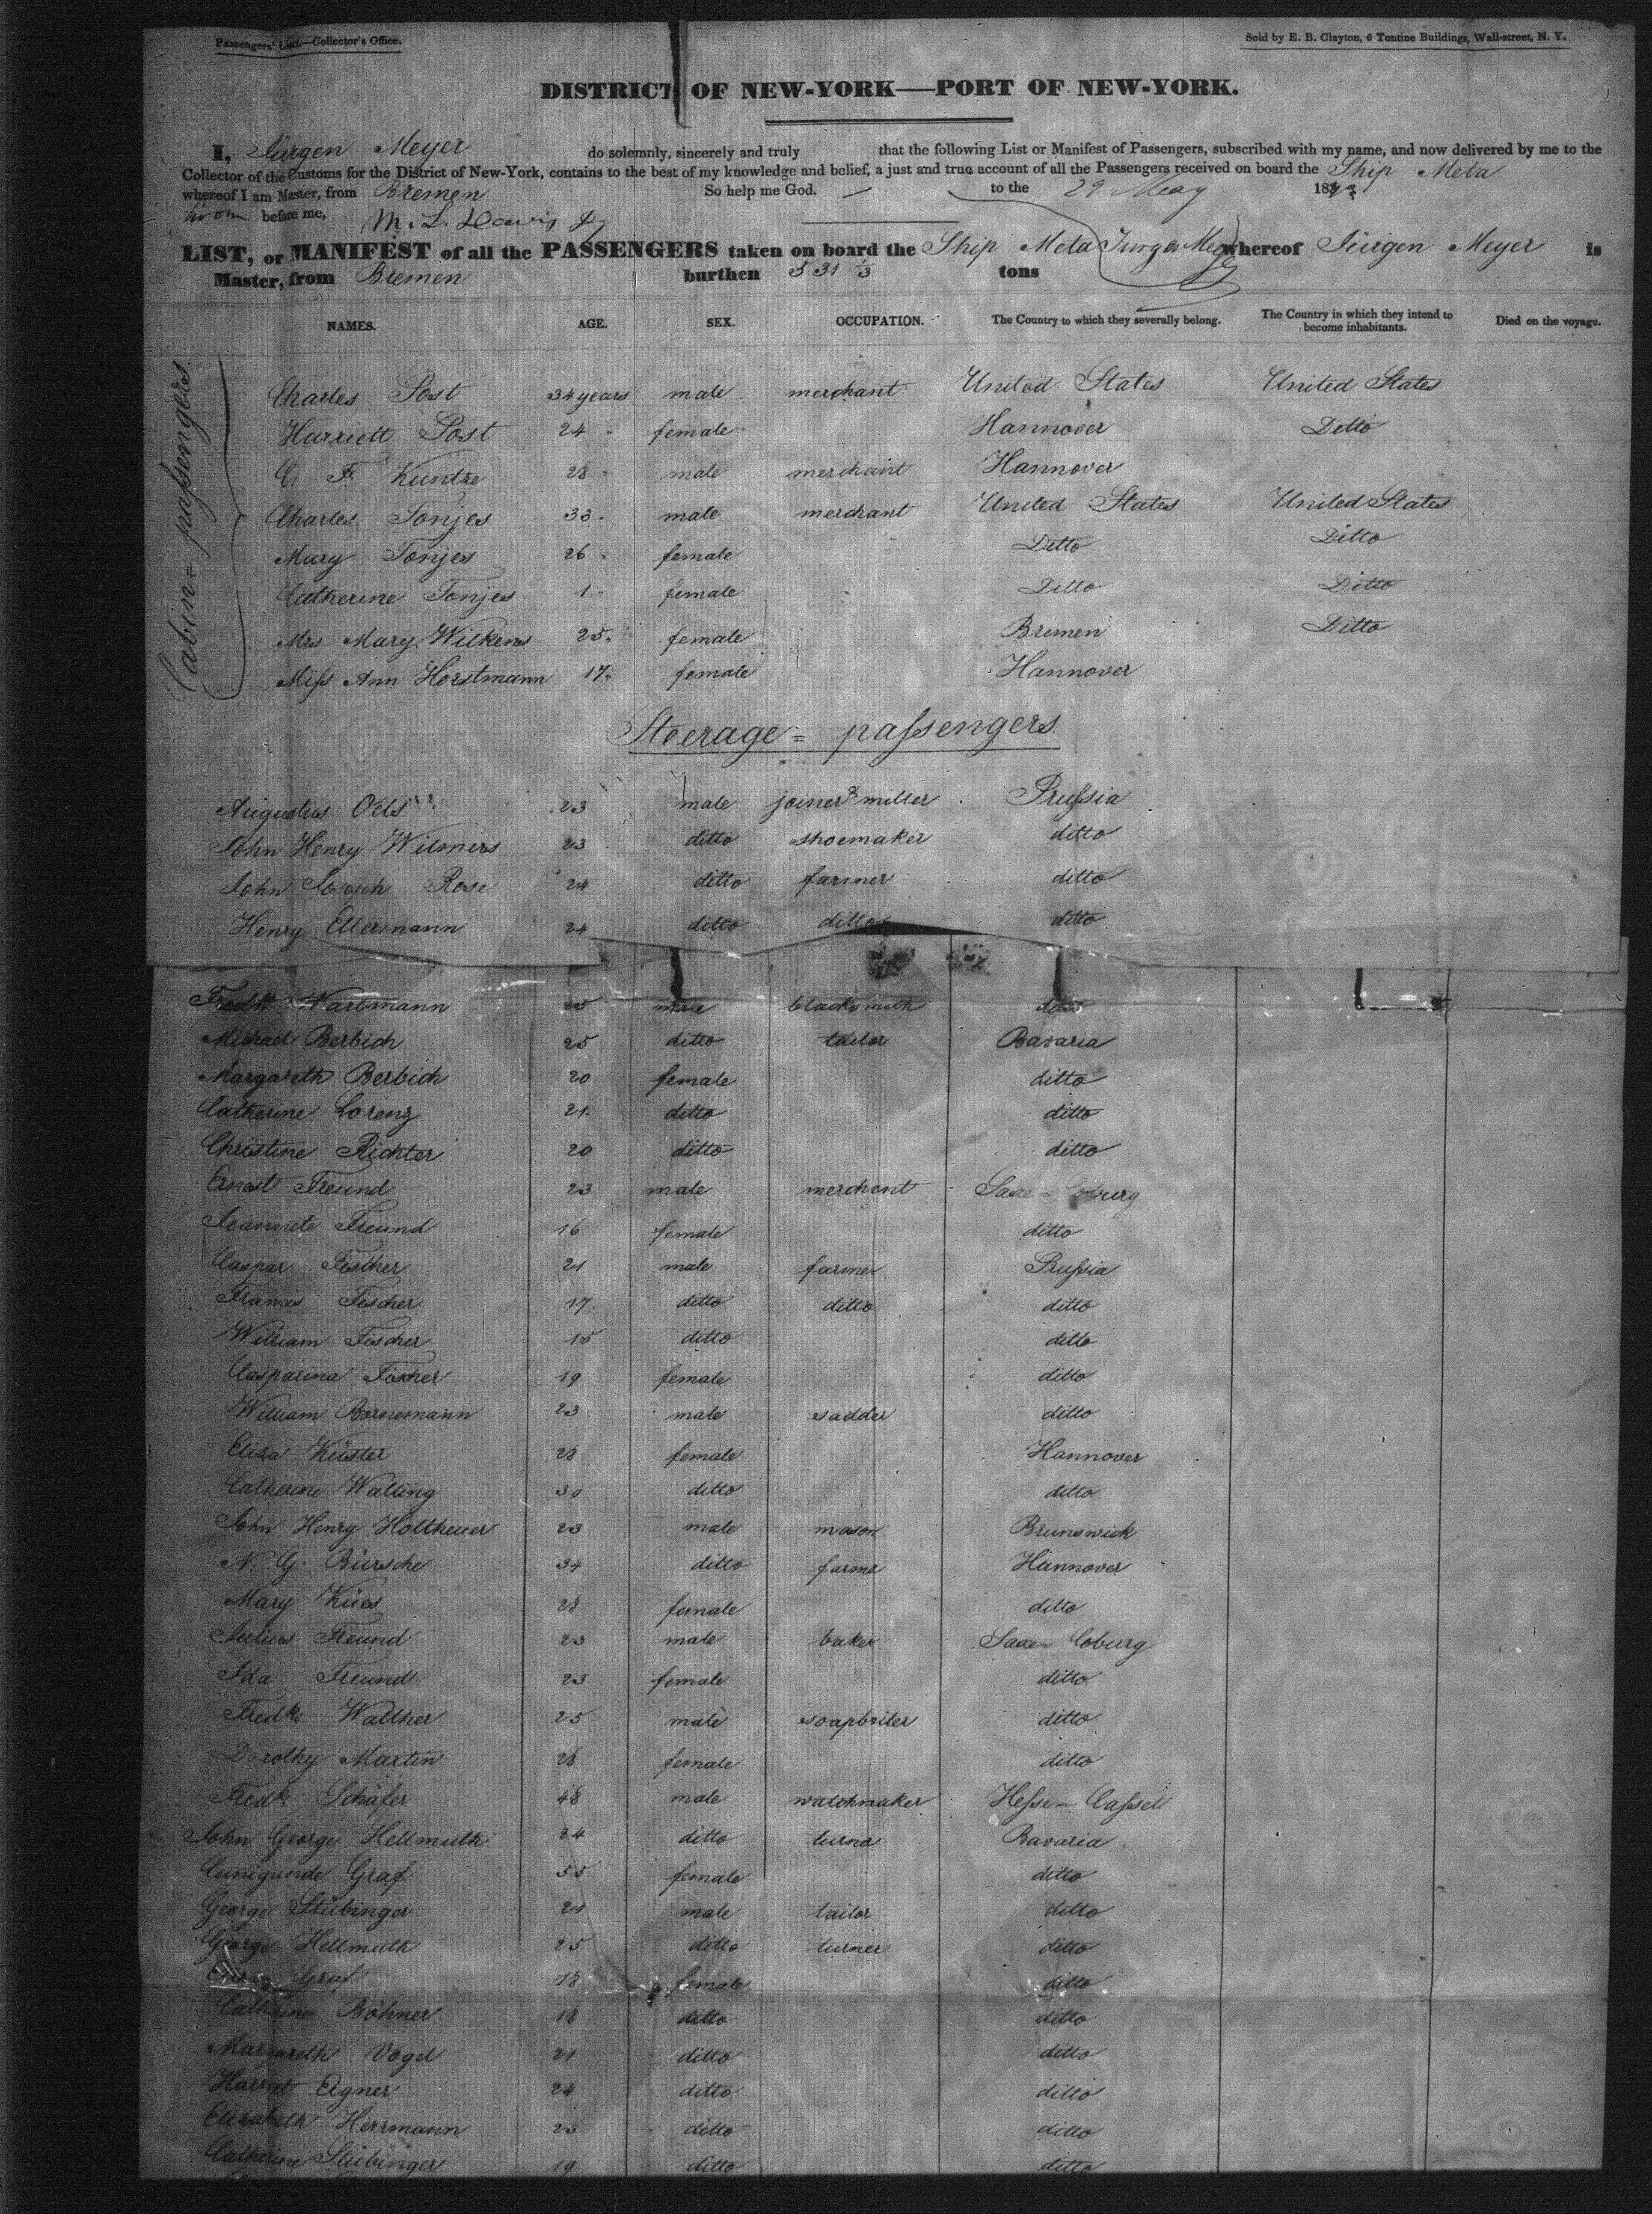 Passengers' Lists.—Collector's Office.
Sold by E. B. Clayton, 6 Tontine Buildings, Wall-street, N. Y.
DISTRICT OF NEW-YORK—PORT OF NEW-YORK.
I, Jürgen Meyer do solemnly, sincerely and truly that the following List or Manifest of Passengers, subscribed with my name, and now delivered by me to the
Collector of the Customs for the District of New-York, contains to the best of my knowledge and belief, a just and true account of all the Passengers received on board the Ship Meta
whereof I am Master, from Bremen So help me God. to the 29 May 18
before me, M. L. Davis
LIST, or MANIFEST of all the PASSENGERS taken on board the Ship Meta Jurgen Meyer whereof Jürgen Meyer is
Master, from Bremen burthen 531 1/3 tons
NAMES. AGE. SEX. OCCUPATION. The Country to which they severally belong. The Country in which they intend to become inhabitants. Died on the voyage.
Cabin= passengers.
Charles Post 34 years male merchant United States United States
Harriett Post 24 female Hannover Ditto
C. F. Kuntze 28 male merchant Hannover
Charles Tonjes 33 male merchant United States United States
Mary Tonjes 26 female Ditto Ditto
Catherine Tonjes 1 female Ditto Ditto
Mrs Mary Wilkens 25 female Bremen Ditto
Miss Ann Horstmann 17 female Hannover
Steerage= passengers.
Augustus Oels 23 male joiner & miller Prussia
John Henry Wilmers 23 ditto shoemaker ditto
John Joseph Rose 24 ditto farmer ditto
Henry Ellermann 24 ditto ditto ditto
Fredk Wartmann 25 male blacksmith ditto
Michael Berbich 25 ditto tailor Bavaria
Margareth Berbich 20 female ditto
Catherine Lorenz 21 ditto ditto
Christine Richter 20 ditto ditto
Ernest Freund 23 male merchant Saxe-Coburg
Jeannete Freund 16 female ditto
Caspar Fischer 21 male farmer Prussia
Francis Fischer 17 ditto ditto ditto
William Fischer 15 ditto ditto
Casparina Fischer 19 female ditto
William Bornemann 23 male sadder ditto
Eliza Küster 28 female Hannover
Catherine Walling 30 ditto ditto
John Henry Holtheuer 23 male mason Brunswick
N. G. Bürsche 34 ditto farmer Hannover
Mary Kües 28 female ditto
Julius Freund 23 male baker Saxe-Coburg
Ida Freund 23 female ditto
Fredk. Walther 25 male soapboiler ditto
Dorothy Martin 28 female ditto
Fredk. Schäfer 48 male watchmaker Hesse-Cassel
John George Hellmuth 24 ditto turner Bavaria
Cunigunde Graf 55 female ditto
George Stübinger 21 male tailor ditto
George Hellmuth 25 ditto turner ditto
Graf 18 female ditto
Catherine Böhner 18 ditto ditto
Margareth Vogel 21 ditto ditto
Harriet Eigner 24 ditto ditto
Elizabeth Herrmann 23 ditto ditto
Catherine Stübinger 19 ditto ditto